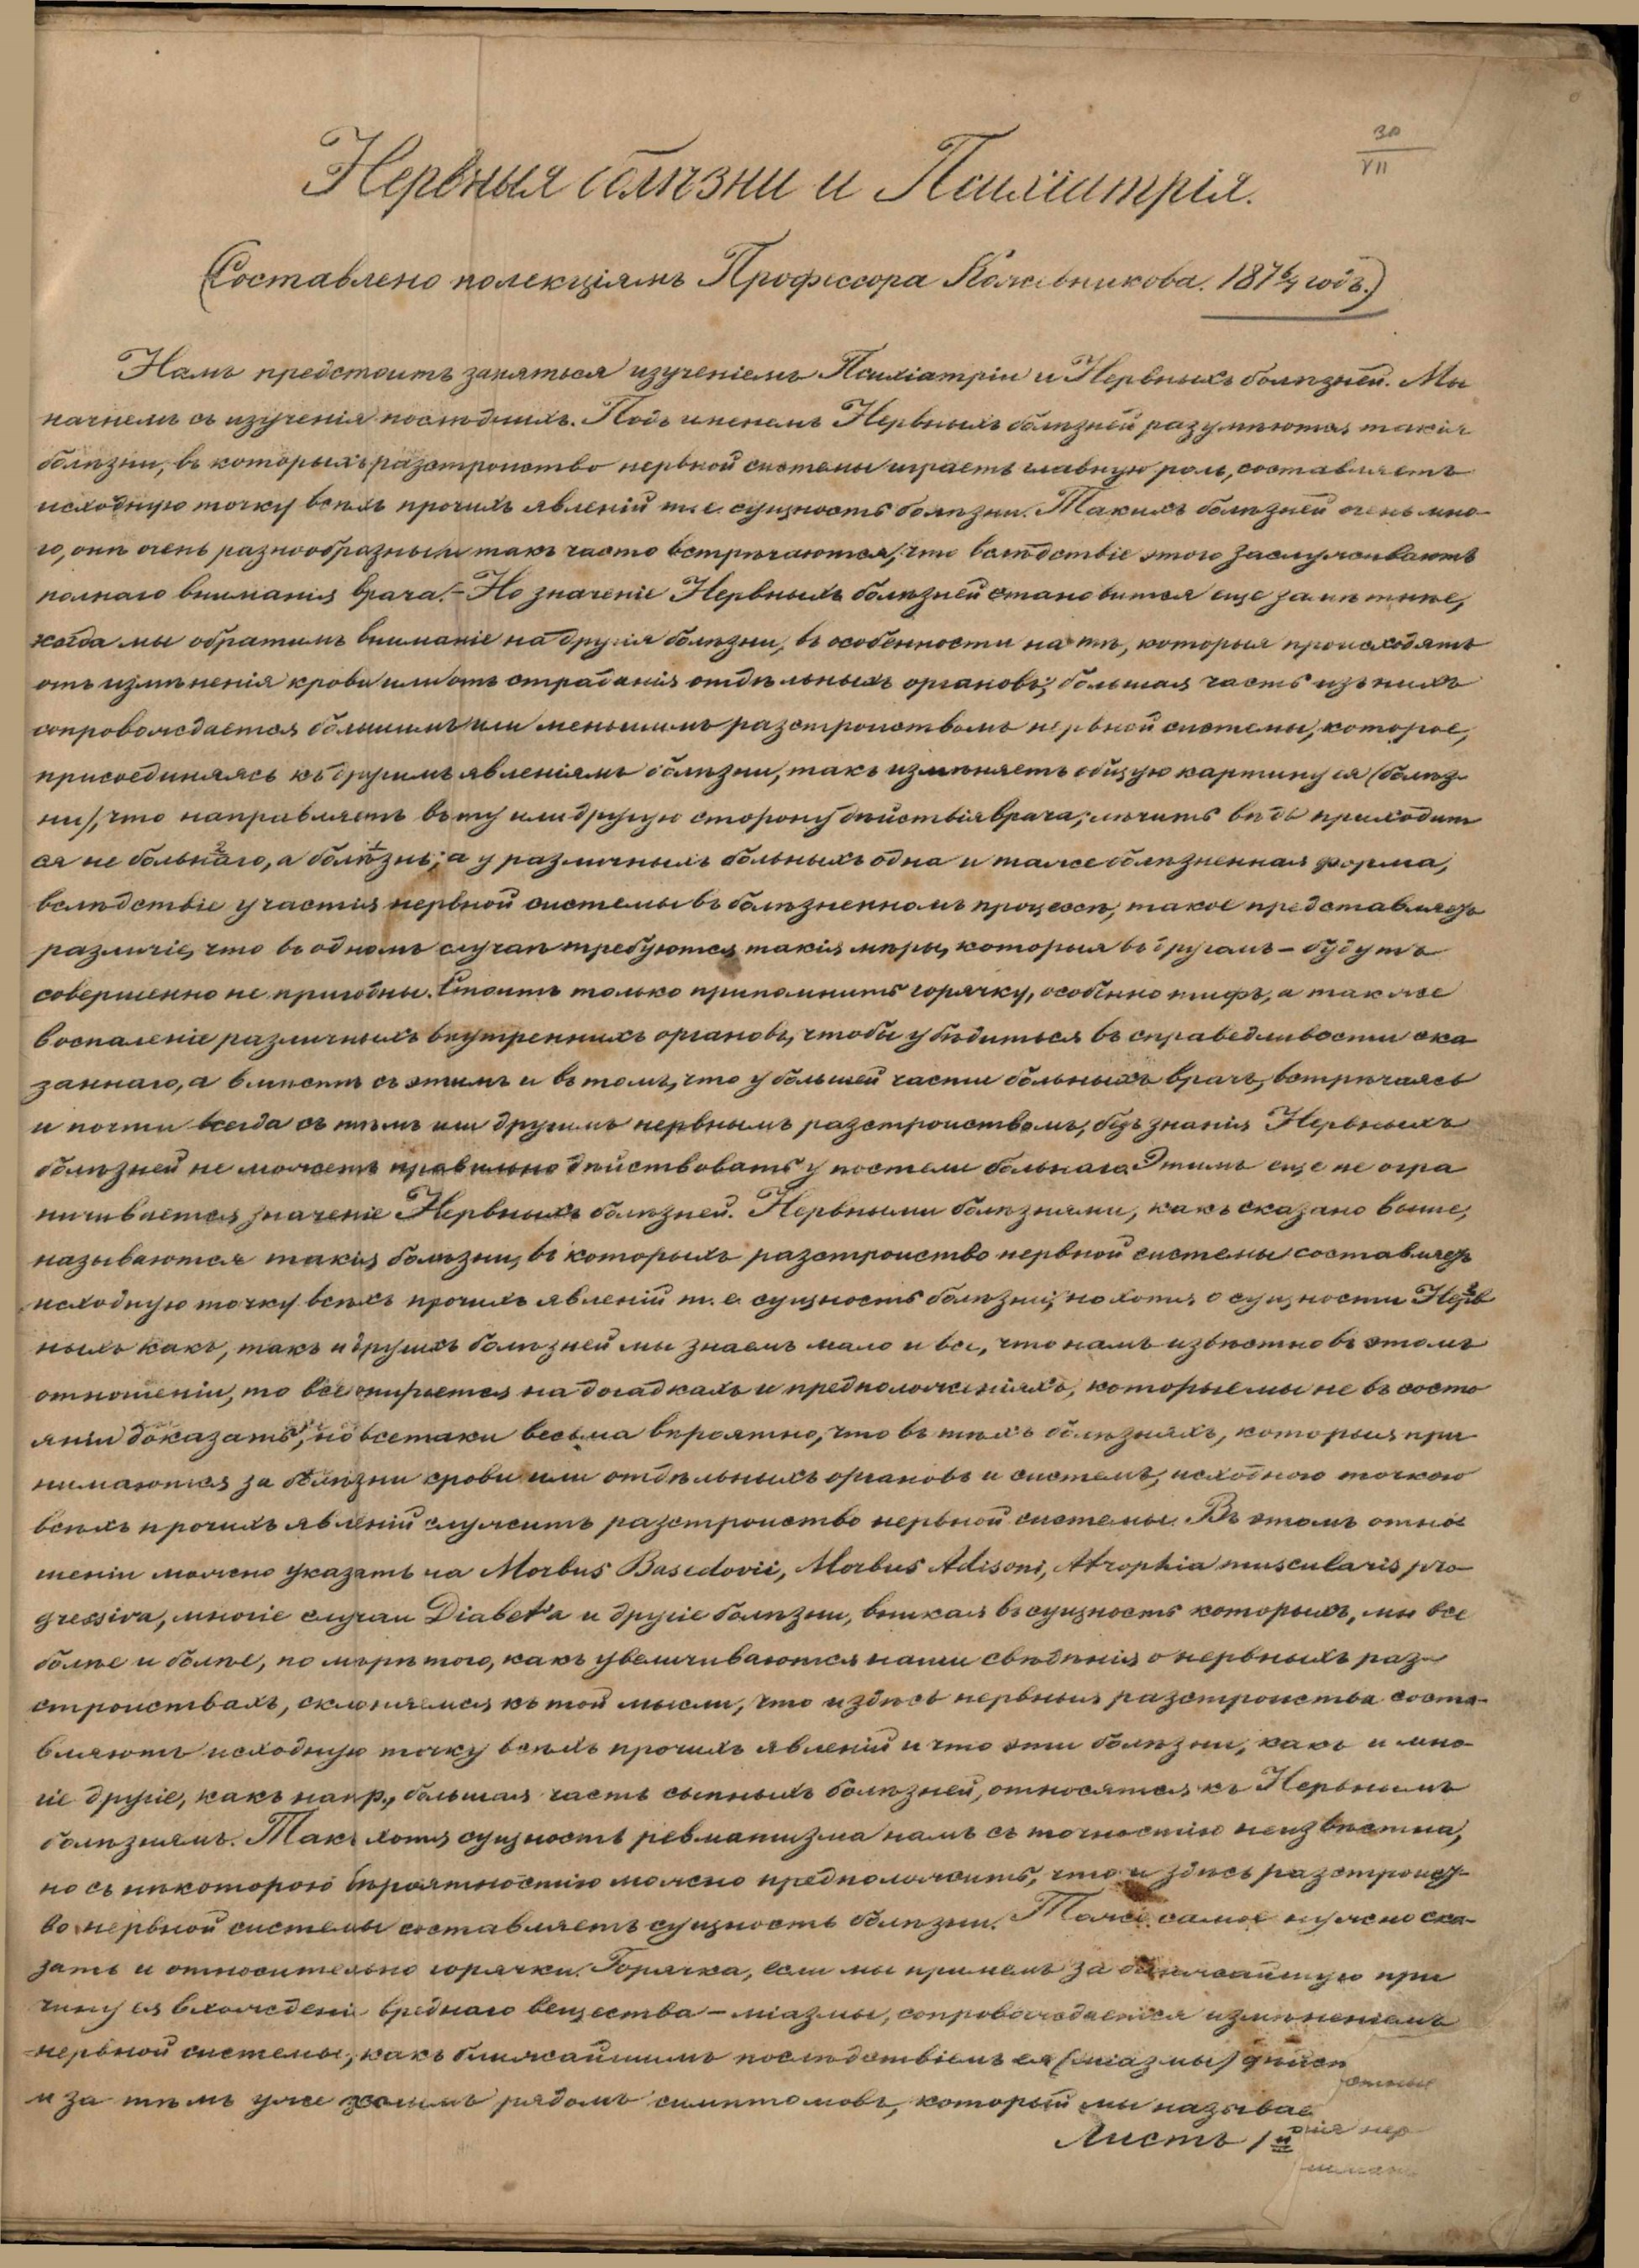 30
VII
Нервныя болѣзни и Психіатрія.
(Составлено по лекціямъ Профессора Кожевникова. 187 6/7 годъ.)
Намъ предстоитъ заняться изученіемъ Психіатріи и Нервныхъ болѣзней. Мы
начнемъ съ изученія послѣднихъ. Подъ именемъ Нервныхъ болѣзней разумѣются такія
болѣзни, въ которыхъ разстройство нервной системы играетъ главную роль, составляетъ
исходную точку всѣхъ прочихъ явленій т. е. сущность болѣзни. Такихъ болѣзней очень мно-
го, онѣ очень разнообразны и такъ часто встрѣчаются, что вслѣдствіе этого заслуживаютъ
полнаго вниманія врача. – Но значеніе Нервныхъ болѣзней становится еще замѣтнѣе,
когда мы обратимъ вниманіе на другія болѣзни, въ особенности на тѣ, которыя происходятъ
отъ измѣненія крови или отъ страданія отдѣльныхъ органовъ; большая часть изъ нихъ
сопровождается большимъ или меньшимъ разстройствомъ нервной системы, которое,
присоединяясь къ другимъ явленіямъ болѣзни, такъ измѣняетъ общую картину ея (болѣз-
ни), что направляетъ въ ту или другую сторону дѣйствія врача; лѣчить вѣдь приходит
ся не больнаго, а болѣзнь; а у различныхъ больныхъ одна и таже болѣзненная форма,
вслѣдствіе участія нервной системы въ болѣзненномъ процессѣ, такое представляетъ
различіе, что въ одномъ случаѣ требуются такія мѣры, которыя въ другомъ – будутъ
совершенно не пригодны. Стоитъ только припомнить горячку, особенно тифъ, а также
воспаленіе различныхъ внутреннихъ органовъ, чтобы убѣдиться въ справедливости ска
заннаго, а вмѣстѣ съ этимъ и въ томъ, что у большей части больныхъ врачъ, встрѣчаясь
и почти всегда съ тѣмъ или другимъ нервнымъ разстройствомъ, безъ знанія Нервныхъ
болѣзней не можетъ правильно дѣйствовать у постели больнаго. Этимъ еще не огра
ничивается значеніе Нервныхъ болѣзней. Нервными болѣзнями, какъ сказано выше,
называются такія болѣзни, въ которыхъ разстройство нервной системы составляетъ
исходную точку всѣхъ прочихъ явленій т. е. сущность болѣзни; но хотя о сущности Нерв
ныхъ какъ, такъ и другихъ болѣзней мы знаемъ мало и все, что намъ извѣстно въ этомъ
отношеніи, то все опирается на догадкахъ и предположеніяхъ, которые мы не въ состо
яніи доказать, но всетаки весьма вѣроятно, что въ тѣхъ болѣзняхъ, которыя при
нимаются за болѣзни крови или отдѣльныхъ органовъ и системъ, исходною точкою
всѣхъ прочихъ явленій служитъ разстройство нервной системы. Въ этомъ отно
шеніи можно указать на Morbus Basedovii, Morbus Adisoni, Atrophia muscularis pro-
gressiva, многіе случаи Diabet'a и другіе болѣзни, вникая въ сущность которыхъ, мы все
болѣе и болѣе, по мѣрѣ того, какъ увеличиваются наши свѣдѣнія о нервныхъ раз-
стройствахъ, склоняемся къ той мысли, что и здѣсь нервныя разстройства соста-
вляютъ исходную точку всѣхъ прочихъ явленій и что эти болѣзни, какъ и мно-
гіе другіе, какъ напр., большая часть сыпныхъ болѣзней, относятся къ Нервнымъ
болѣзнямъ. Такъ хотя сущность ревматизма намъ съ точностію неизвѣстна,
но съ нѣкоторою вѣроятностію можно предположить, что и здѣсь разстройст-
во нервной системы составляетъ сущность болѣзни. Тоже самое нужно ска-
зать и относительно горячки. Горячка, если мы примемъ за ближайшую при
чину ея вхожденіе вреднаго вещества – міазмы, сопровождается измѣненіемъ
нервной системы, какъ ближайшимъ послѣдствіемъ ея (міазмы) дѣйст
и за тѣмъ уже цѣлымъ рядомъ симптомовъ, который мы называе
Листъ 1й